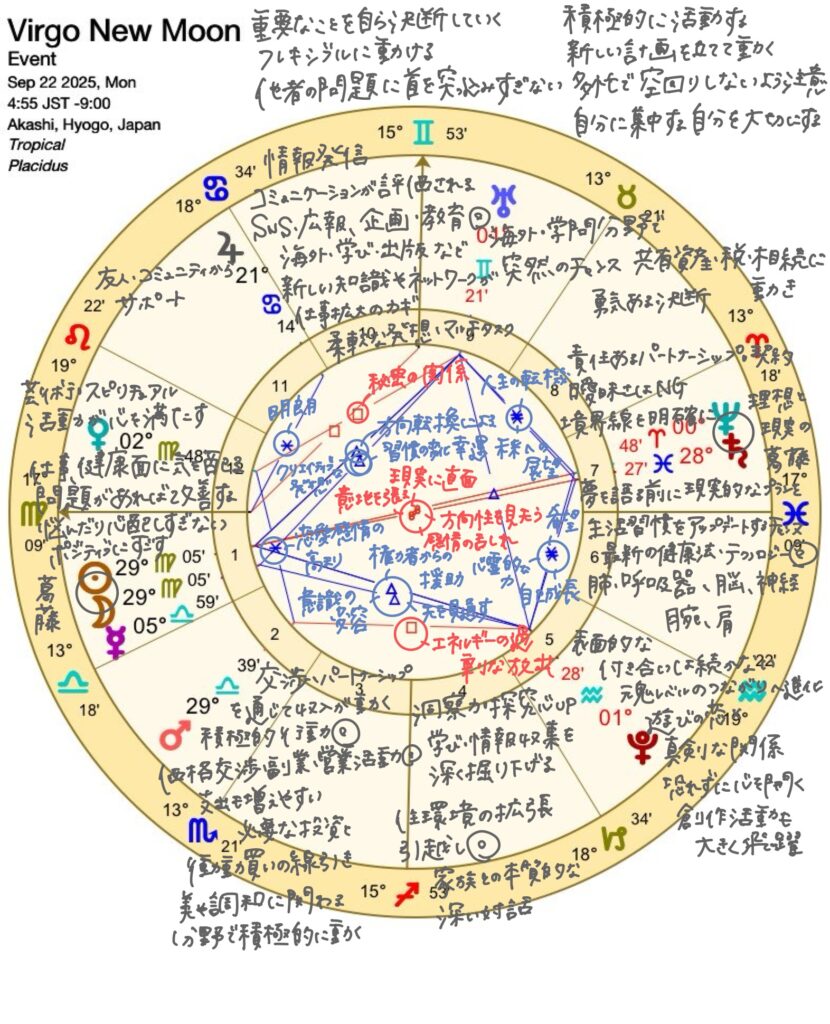 Virgo New Moon
Event
Sep 22 2025, Mon
4:55 JST -9:00
Akashi, Hyogo, Japan
Tropical
Placidus
重要なことを自ら決断していく
フレキシブルに動ける
他者の問題に首を突っ込みすぎない
積極的に活動する
新しい計画を立てて動く
多忙で空回りしないよう注意
自分に集中する自分を大切にする
15° ♊ 53'
情報発信
コミュニケーションが評価される
SNS・広報、企画・教育◎
海外・学び・出版など
新しい知識やネットワークが
仕事拡大のカギ
柔軟な発想・マルチタスク
34'
18°
21°
14'
友人・コミュニティから
サポート
13°
21'
01°
21'
海外・学問分野で
突然のチャンス
共有資産・税・相続に
動き
勇気ある決断
13°
18'
責任あるパートナーシップ、契約
曖昧さはNG
境界線を明確に
理想と
現実の
葛藤
48' ♈ 00°
27' ♓ 28°
17°
09'
夢を語る前に現実的なプランを
生活習慣をアップデートする
最新の健康法・テクノロジー◎
肺・呼吸器、脳、神経
腕、肩
22'
19°
表面的な
付き合いは続かない
魂レベルのつながりへ進化
28'
01°
遊びの恋
真剣な関係
恐れずに心を開く
創作活動も
大きく飛躍
34'
18°
洞察力探究心up
学び・情報収集を
深く掘り下げる
住環境の拡張
引越し◎
家族との本質的な
深い対話
15° ♐ 53'
交渉・パートナーシップ
を通じて収入が動く
積極的行動◎
価格交渉・副業・営業活動◎
支出も増えやすい
必要な投資と
衝動買いの線引き
美や調和に関わる
分野で積極的に動く
39'
29°
13°
21'
13°
18'
22'
19°
芸術・スピリチュアル
活動が心を満たす
02° ♍ 48'
仕事、健康面に気を配る
問題があればで改善する
悩んだり心配しすぎない
ポジティブにすごす
17°
09'
29° ♍ 05'
29° ♍ 05'
05° ♎ 59'
葛
藤
秘密の関係
人生の転機
明朗
方向転換による
習慣の等に幸運
クリエイティブ
現実に直面
意地を張る
方向性を見失う
感情の乱れ
展望
希望
恋愛感情の
高まり
権力者からの
援助
心霊的な
力
自己成長
意識の
変容
先を見通す
エネルギーの過
剰な放出
1
2
3
4
5
6
7
8
9
10
11
12